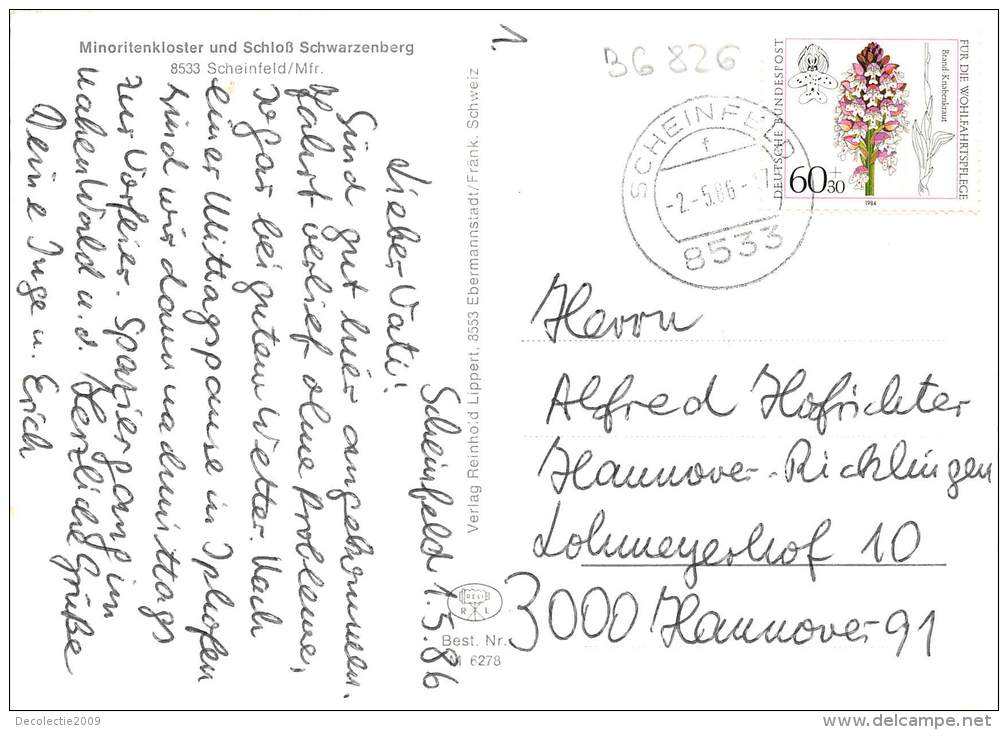 Minoritenkloster und Schloß Schwarzenberg
8533 Scheinfeld/Mfr.
1.
B6 826
Scheinfeld 1.5.86
Lieber Vati!
Sind gut hier angekommen.
Fahrt verlief ohne Probleme,
sogar bei gutem Wetter. Nach
einer Mittagspause in Iphofen
sind wir dann nachmittags
zur Vorfeier. Spaziergang im
nahen Wald u.s. Herzliche Grüße
Deine Inge u. Erich
Verlag Reinhold Lippert, 8553 Ebermannstadt/Fränk. Schweiz
RELI
R L
Best. Nr.
M 6278
SCHEINFELD
f
-2.-5.86-17
8533
DEUTSCHE BUNDESPOST
FÜR DIE WOHLFAHRTSPFLEGE
Brand-Knabenkraut
60+30
1984
Herrn
Alfred Hofrichter
Hannover-Ricklingen
Lohmeyerhof 10
3000 Hannover 91
Decolectie2009
www.delcampe.net